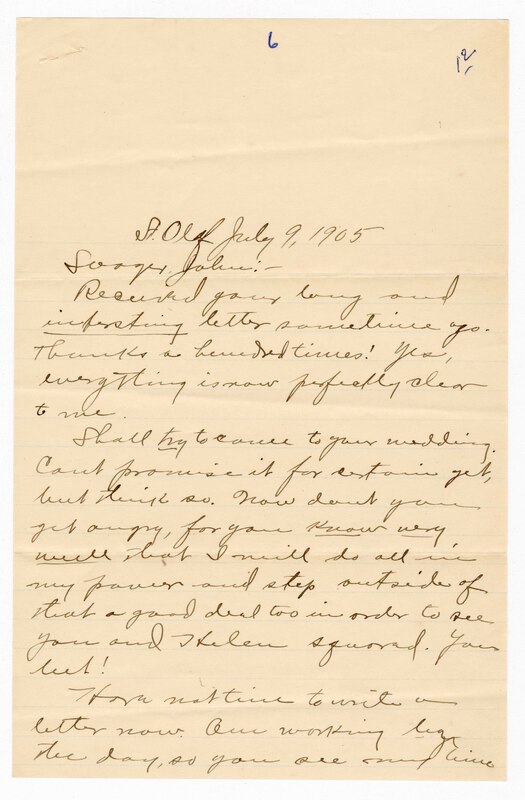 6
12
St. Olaf July 9, 1905
Svoger John:-
Received your long and
intersting letter sometime ago.
Thanks a hundred times! Yes,
everything is now perfectly clear
to me.
Shall try to come to your wedding.
Cant promise it for certain yet,
but think so. Now dont you
get angry, for you know very
well that I will do all in
my power and step outside of
that a good deal too in order to see
you and Helen squared. You
bet!
Have not time to write a
letter now. Am working by
the day, so you see my time